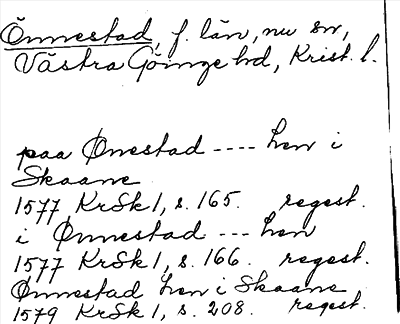 Önnestad, f. län, nu sn,
Västra Göinge hd, Krist. l.
paa Ønestad ---- len i
Skaane
1577 KrSk 1, s. 165. regest.
i Ønnestad --- len
1577 KrSk 1, s. 166. regest.
Ønnestad len i Skaane
1579 KrSk 1, s. 208. regest.